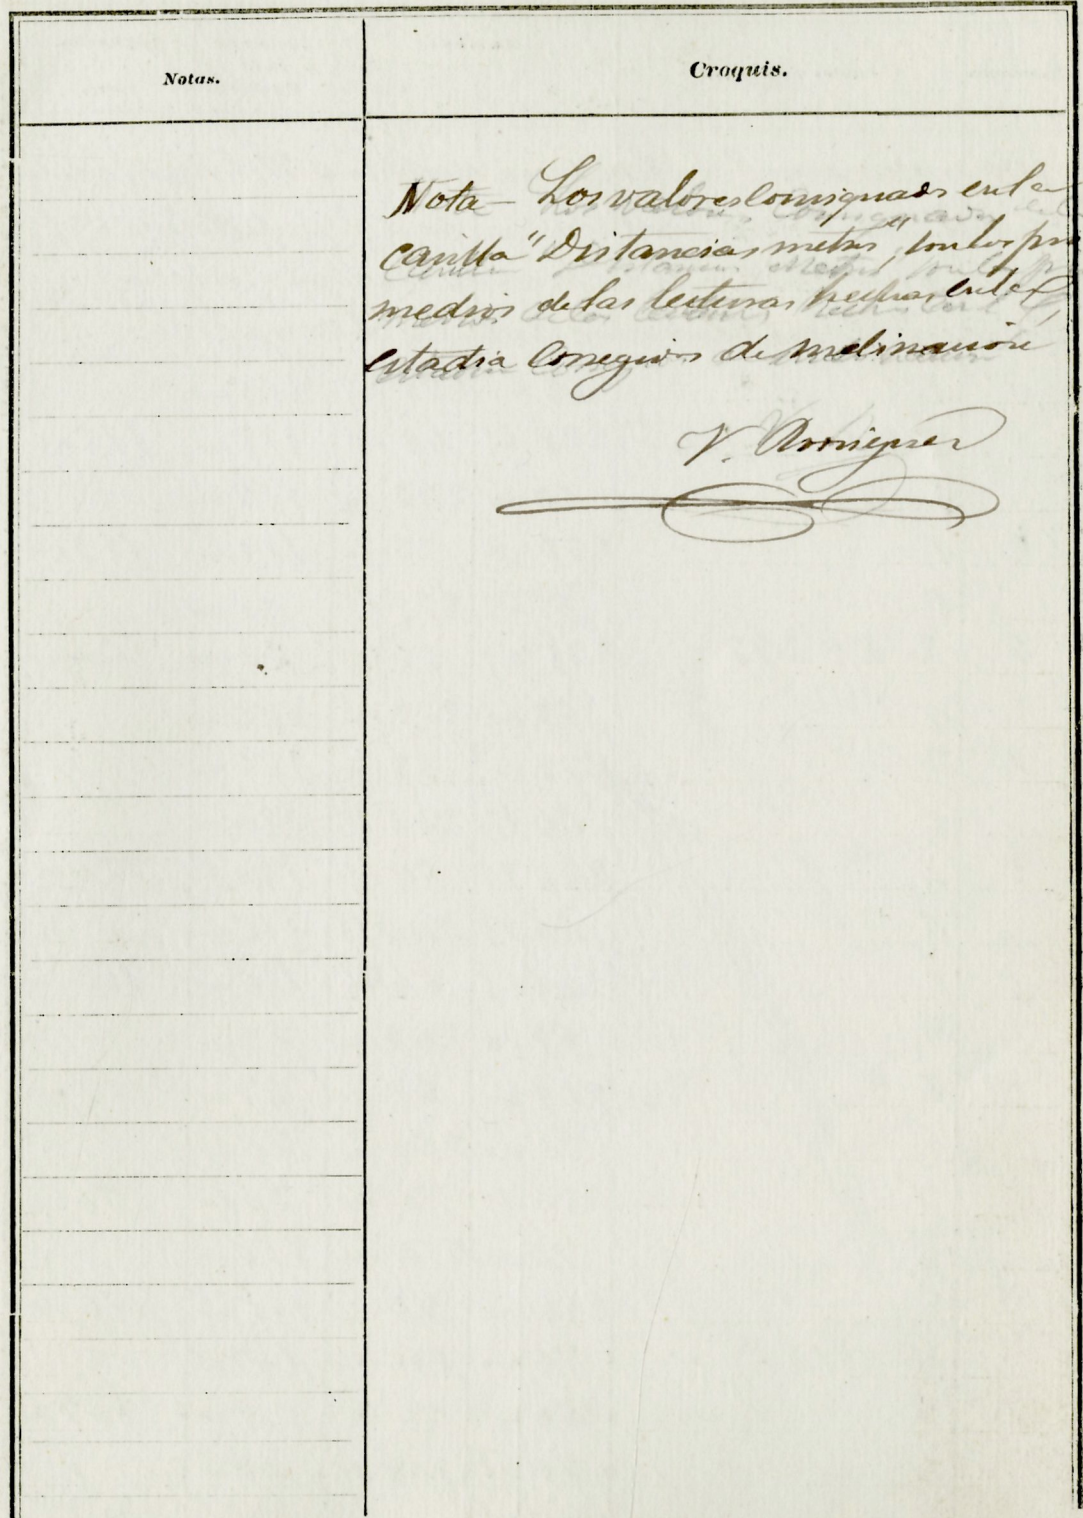 Notas.
Croquis.
Nota – Los valores consignados en la
casilla "Distancias metros", son los pro
medios de las lecturas hechas en la
estadia corregidos de inclinación
V.